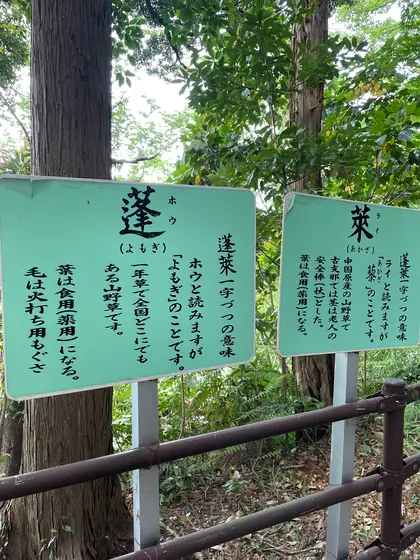 蓬萊一字づつの意味
ホウと読みますが
「よもぎ」のことです。
蓬
ホウ
(よもぎ)
一年草で全国どこにでも
ある山野草です。
葉は食用(薬用)になる。
毛は火打ち用もぐさ
蓬萊一字づつの意味
ライと読みますが
「藜」のことです。
あかざ
萊
ライ
(あかざ)
中国原産の山野草で
古支那では茎は老人の
安全棒(杖)とした。
葉は食用(薬用)になる。